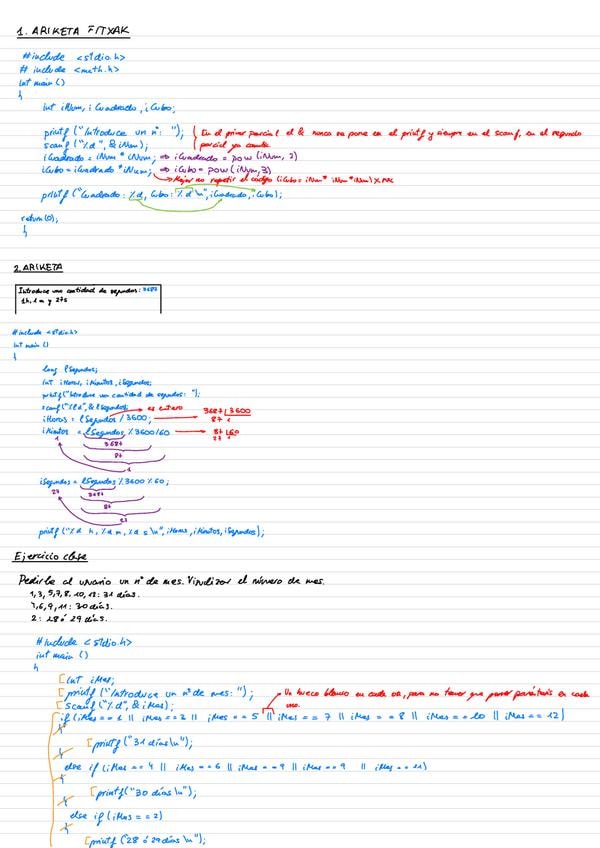 1. ARIKETA FITXAK
#include <stdio.h>
# include <math.h>
int main ()
{
int iNum, iCuadrado, iCubo;
printf ("Introduce un nº: "); } En el primer parcial el & nunca va pone en el printf y siempre en el scanf, en el segundo
scanf ("%d", &iNum); parcial ya cambia
iCuadrado = iNum * iNum; => iCuadrado = pow (iNum, 2)
iCubo = iCuadrado * iNum; => iCubo = pow (iNum, 3)
Mejor no repetir el código (iCubo = iNum * iNum * iNum)
printf ("Cuadrado: %d, Cubo: %d \n", iCuadrado, iCubo);
return (0);
}
2. ARIKETA
Introduce una cantidad de segundos: 3687
1h, 1 m y 27s
#include <stdio.h>
int main ()
{
long lSegundos;
int iHoras, iMinutos, iSegundos;
printf("Introduce una cantidad de segundos: ");
scanf("%ld", &lSegundos); es entero 3687 | 3600
iHoras = lSegundos / 3600; 87 1
iMinutos = lSegundos % 3600/60 87 | 60
27 1
1 3687
87
1
iSegundos = lSegundos % 3600 % 60;
27 3687
87
27
printf ("%d h, %d m, %d s \n", iHoras, iMinutos, iSegundos);
Ejercicio clase
Pedirle al usuario un nº de mes. Visualizar el número de mes.
1, 3, 5, 7, 8, 10, 12: 31 días.
4, 6, 9, 11: 30 días.
2: 28 ó 29 días.
#include <stdio.h>
int main ()
{
int iMes;
printf ("Introduce un nº de mes: "); Un hueco blanco en cada , para no tener que poner paréntesis en cada
scanf ("%d", &iMes); uno.
if (iMes == 1 || iMes == 3 || iMes == 5 || iMes == 7 || iMes == 8 || iMes == 10 || iMes == 12)
{
printf ("31 días\n");
}
else if (iMes == 4 || iMes == 6 || iMes == 9 || iMes == 9 || iMes == 11)
{
printf ("30 días \n");
}
else if (iMes == 2)
{
printf ("28 ó 29 días \n");